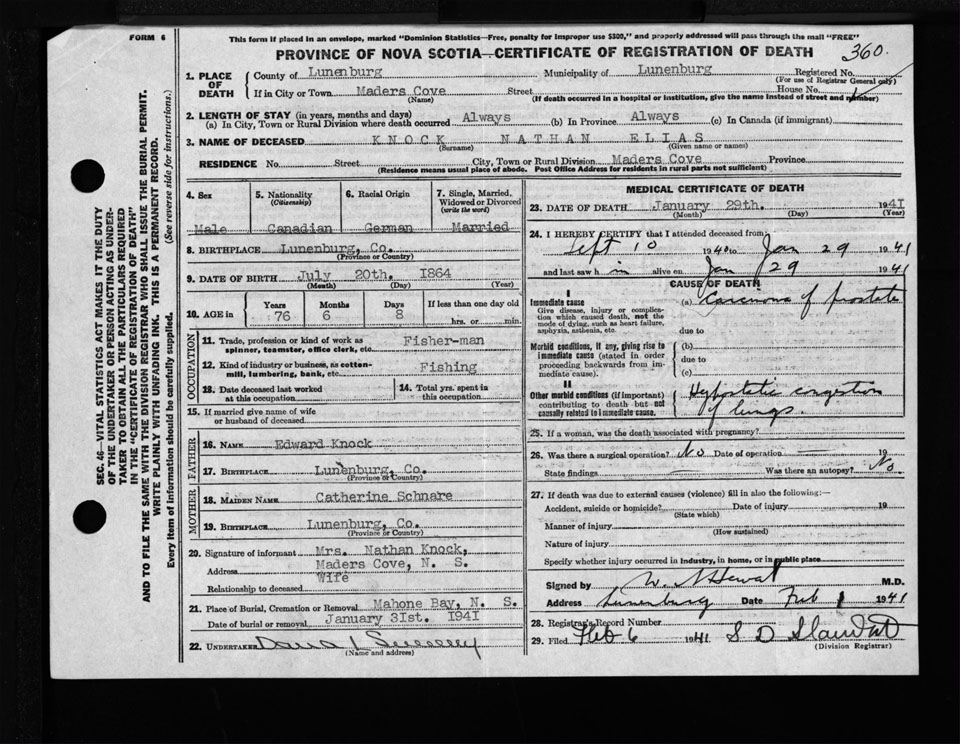 FORM 6
This form if placed in an envelope, marked "Dominion Statistics—Free, penalty for improper use $300," and properly addressed will pass through the mail "FREE"
PROVINCE OF NOVA SCOTIA—CERTIFICATE OF REGISTRATION OF DEATH 360.
1. PLACE OF DEATH
County of Lunenburg Municipality of Lunenburg Registered No.
(For use of Registrar General only)
If in City or Town Maders Cove Street House No.
(Name) (If death occurred in a hospital or institution, give the name instead of street and number)
2. LENGTH OF STAY (in years, months and days)
(a) In City, Town or Rural Division where death occurred Always (b) In Province Always (c) In Canada (if immigrant)
3. NAME OF DECEASED KNOCK NATHAN ELIAS
(Surname) (Given name or names)
RESIDENCE No. Street City, Town or Rural Division Maders Cove Province
(Residence means usual place of abode. Post Office Address for residents in rural parts not sufficient)
4. Sex 5. Nationality (Citizenship) 6. Racial Origin 7. Single, Married, Widowed or Divorced (write the word)
Male Canadian German Married
8. BIRTHPLACE Lunenburg, Co.
(Province or Country)
9. DATE OF BIRTH July 20th. 1864
(Month) (Day) (Year)
10. AGE in Years Months Days If less than one day old
76 6 8 hrs. or min.
OCCUPATION
11. Trade, profession or kind of work as spinner, teamster, office clerk, etc. Fisher-man
12. Kind of industry or business, as cotton-mill, lumbering, bank, etc. Fishing
13. Date deceased last worked at this occupation
14. Total yrs. spent in this occupation
15. If married give name of wife or husband of deceased
FATHER
16. NAME Edward Knock
17. BIRTHPLACE Lunenburg, Co.
(Province or Country)
MOTHER
18. MAIDEN NAME Catherine Schnare
19. BIRTHPLACE Lunenburg, Co.
(Province or Country)
20. Signature of informant Mrs. Nathan Knock,
Address Maders Cove, N. S.
Relationship to deceased Wife
21. Place of Burial, Cremation or Removal Mahone Bay, N. S.
Date of burial or removal January 31st. 1941
22. UNDERTAKER
(Name and address)
MEDICAL CERTIFICATE OF DEATH
23. DATE OF DEATH January 29th. 1941
(Month) (Day) (Year)
24. I HEREBY CERTIFY that I attended deceased from
Sept 10 1940 to Jan 29 1941
and last saw h im alive on Jan 29 1941
CAUSE OF DEATH
I
Immediate cause (a) of prostate
Give disease, injury or complication which caused death, not the mode of dying, such as heart failure, asphyxia, asthenia, etc.
due to
Morbid conditions, if any, giving rise to immediate cause (stated in order proceeding backwards from immediate cause).
(b)
due to
(c)
II
Other morbid conditions (if important) contributing to death but not causally related to immediate cause.
Hypostatic congestion
of lungs.
25. If a woman, was the death associated with pregnancy?
26. Was there a surgical operation? No Date of operation
State findings Was there an autopsy? No
27. If death was due to external causes (violence) fill in also the following:—
Accident, suicide or homicide? Date of injury 19
(State which)
Manner of injury
(How sustained)
Nature of injury
Specify whether injury occurred in Industry, in home, or in public place
Signed by M.D.
Address Lunenburg Date Feb 1 1941
28. Registrar's Record Number
29. Filed Feb 6 1941 S D
(Division Registrar)
SEC. 46—VITAL STATISTICS ACT MAKES IT THE DUTY
OF THE UNDERTAKER OR PERSON ACTING AS UNDER-
TAKER TO OBTAIN ALL THE PARTICULARS REQUIRED
IN THE "CERTIFICATE OF REGISTRATION OF DEATH"
AND TO FILE THE SAME WITH THE DIVISION REGISTRAR WHO SHALL ISSUE THE BURIAL PERMIT.
WRITE PLAINLY WITH UNFADING INK. THIS IS A PERMANENT RECORD.
Every item of information should be carefully supplied. (See reverse side for instructions.)